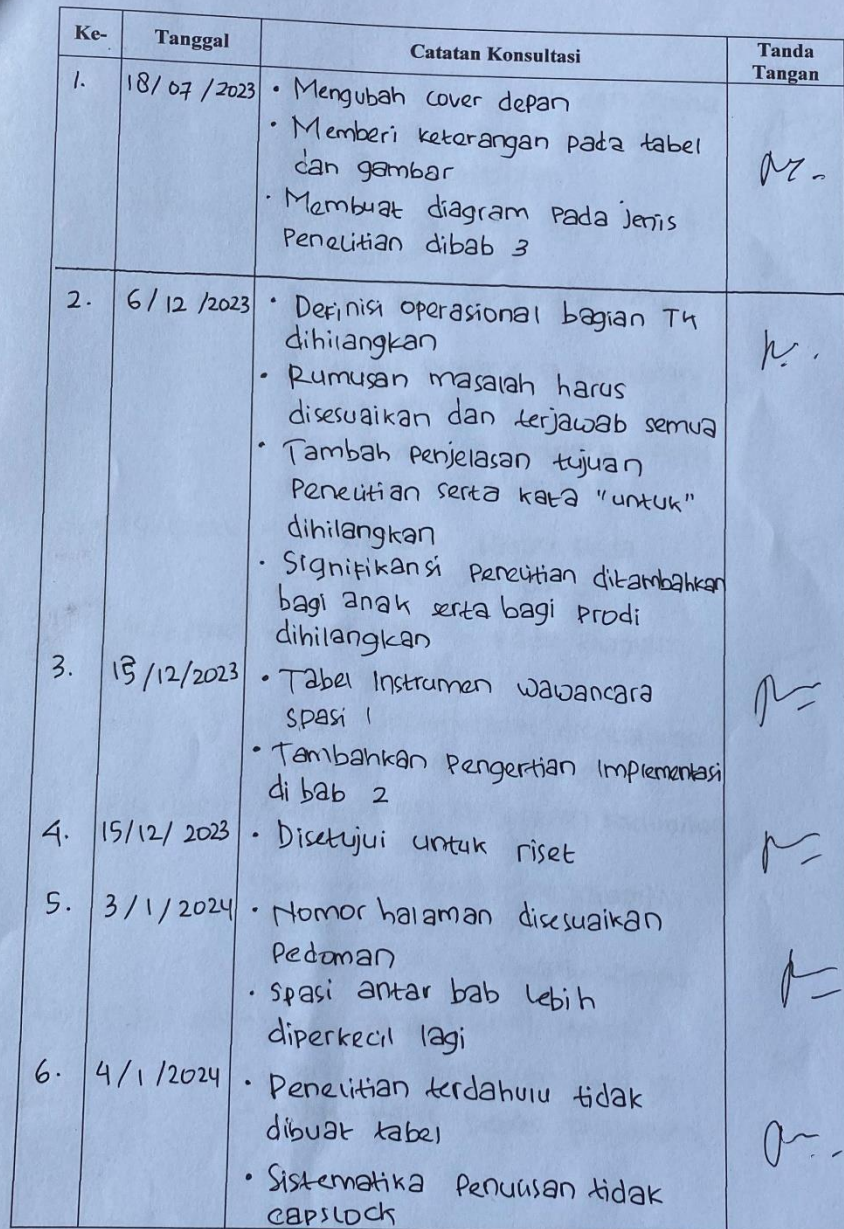 Ke- Tanggal Catatan Konsultasi Tanda
Tangan
1. 18/07/2023 • Mengubah cover depan
• Memberi keterangan pada tabel
dan gambar
• Membuat diagram pada jenis
Penelitian dibab 3
2. 6/12/2023 • Definisi operasional bagian TK
dihilangkan
• Rumusan masalah harus
disesuaikan dan terjawab semua
• Tambah penjelasan tujuan
Penelitian serta kata "untuk"
dihilangkan
• Signifikansi Penelitian ditambahkan
bagi anak serta bagi prodi
dihilangkan
3. /12/2023 • Tabel Instrumen wawancara
spasi 1
• Tambahkan Pengertian Implementasi
di bab 2
4. 15/12/2023 • Disetujui untuk riset
5. 3/1/2024 • Nomor halaman disesuaikan
Pedoman
• spasi antar bab lebih
diperkecil lagi
6. 4/1/2024 • Penelitian terdahulu tidak
dibuat tabel
• Sistematika Penulisan tidak
capslock